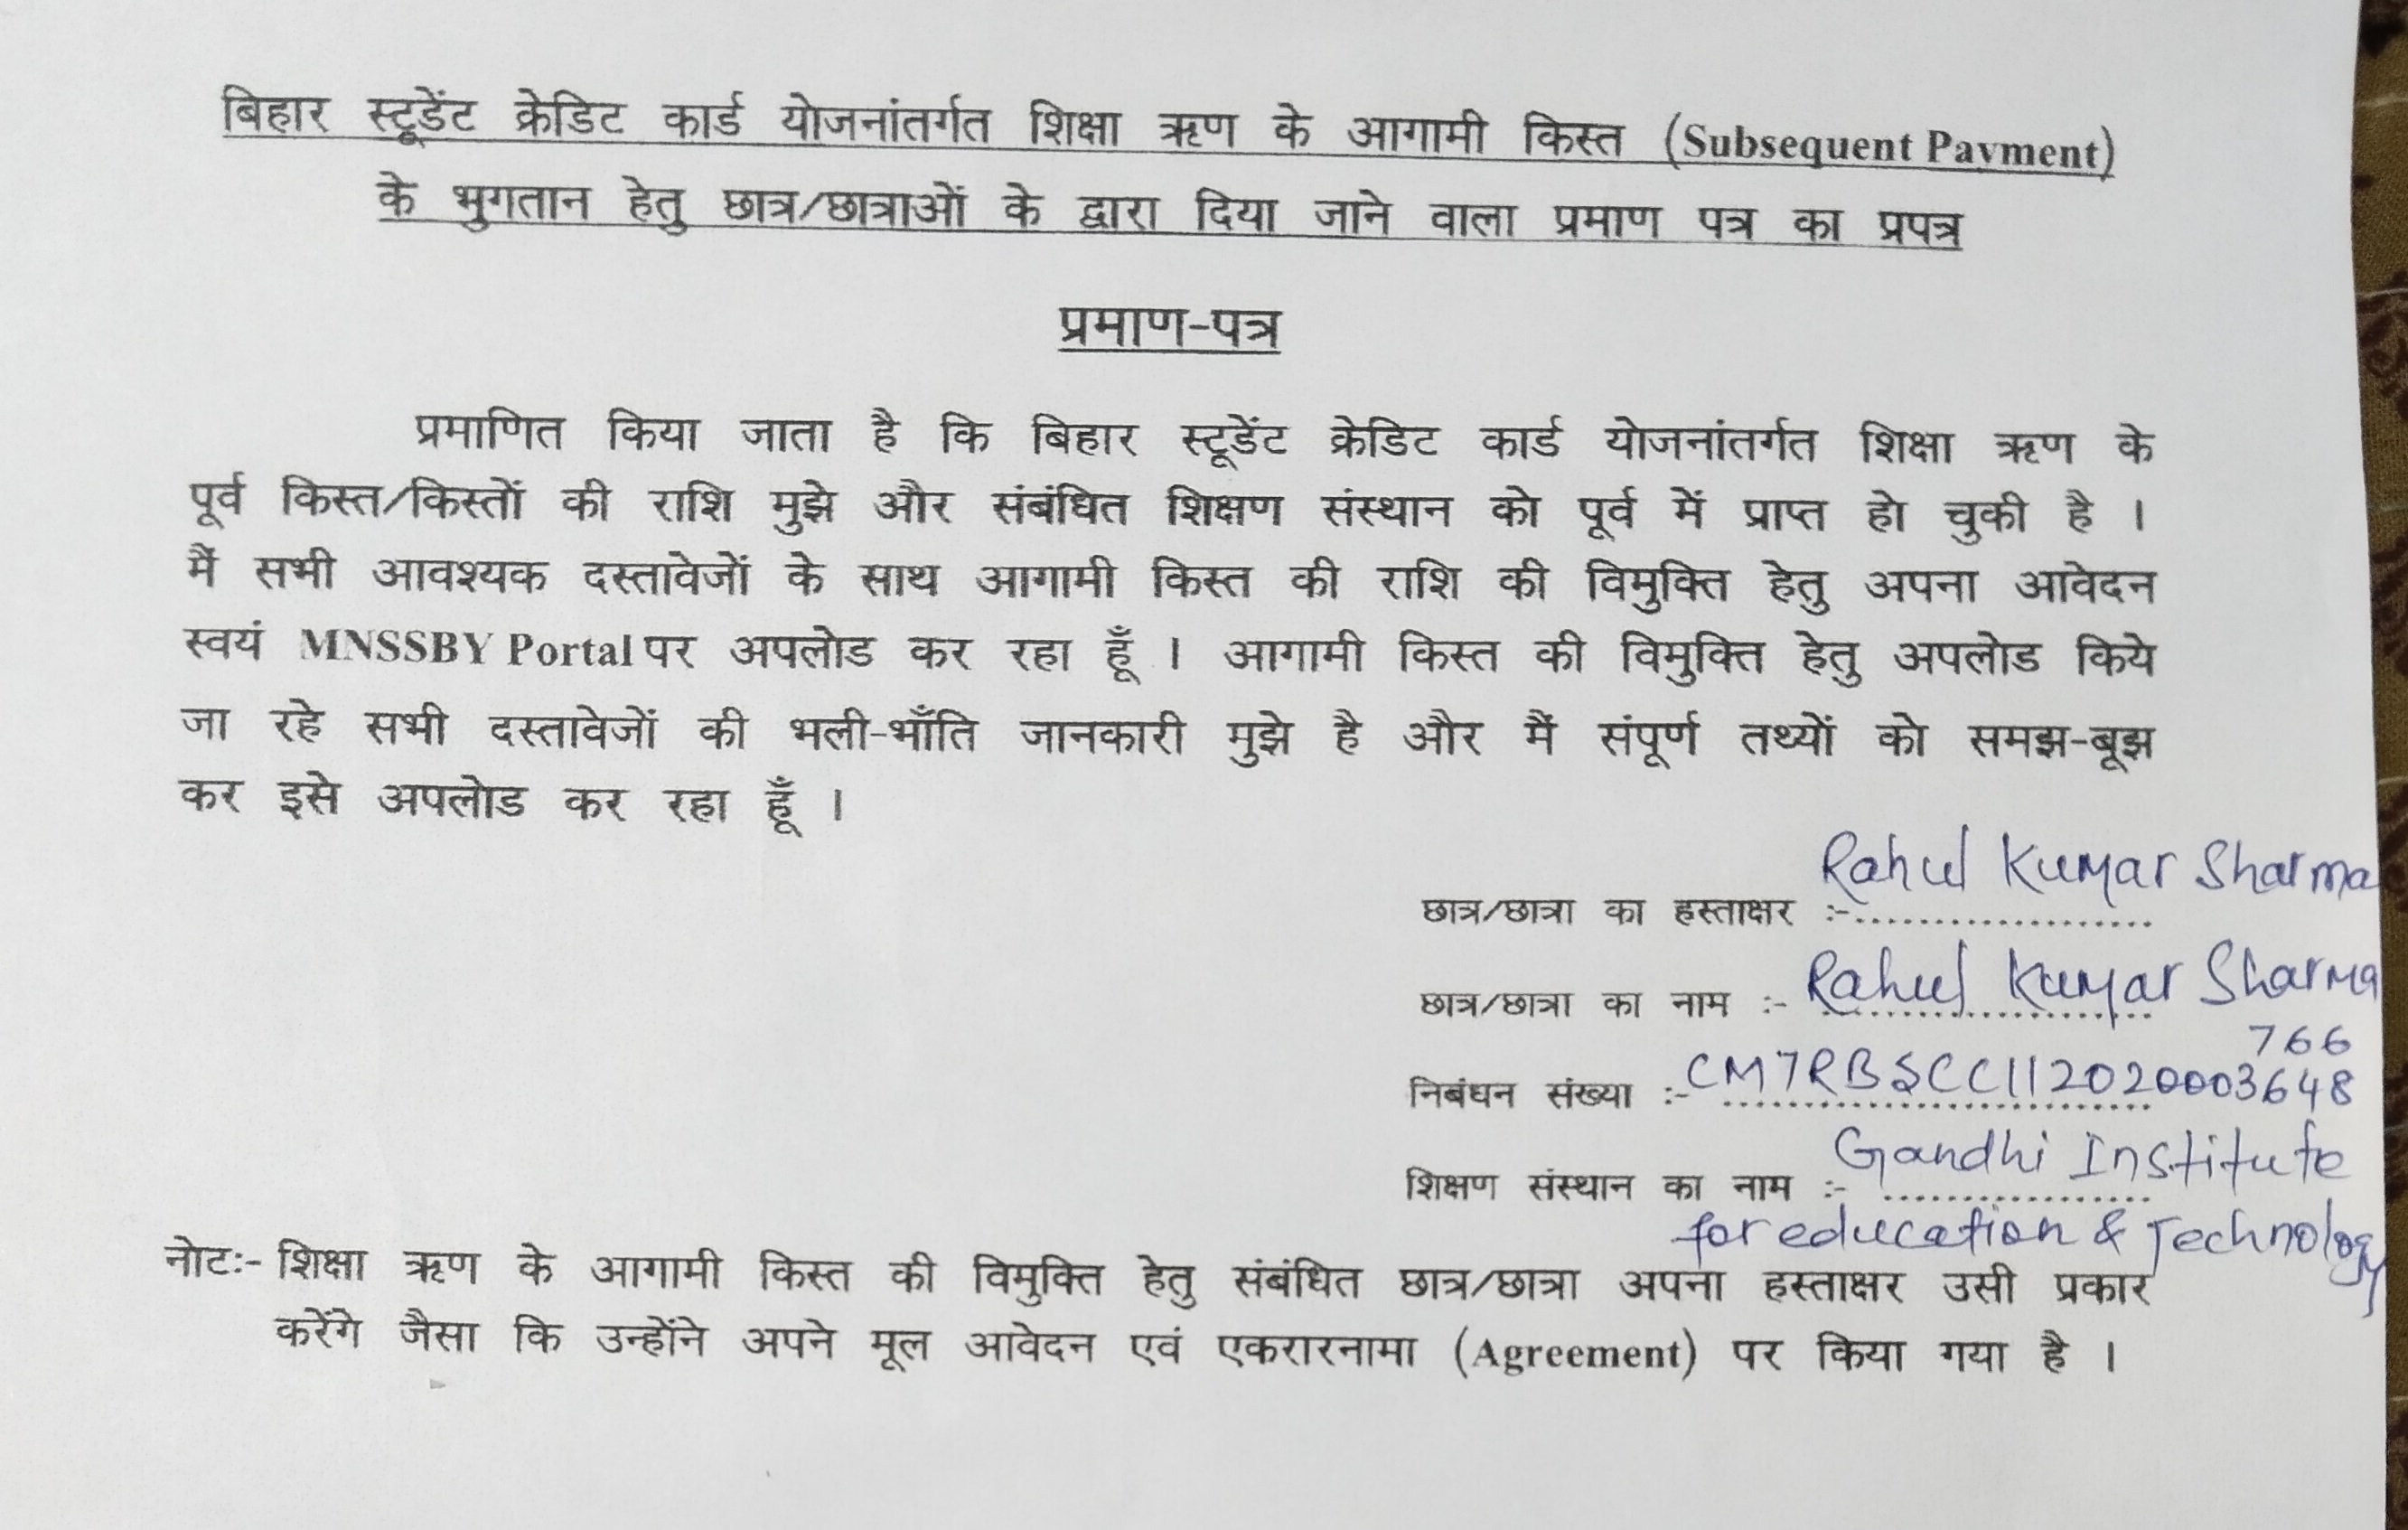 बिहार स्टूडेंट क्रेडिट कार्ड योजनांतर्गत शिक्षा ऋण के आगामी किस्त (Subsequent Payment)
के भुगतान हेतु छात्र/छात्राओं के द्वारा दिया जाने वाला प्रमाण पत्र का प्रपत्र
प्रमाण-पत्र
प्रमाणित किया जाता है कि बिहार स्टूडेंट क्रेडिट कार्ड योजनांतर्गत शिक्षा ऋण के
पूर्व किस्त/किस्तों की राशि मुझे और संबंधित शिक्षण संस्थान को पूर्व में प्राप्त हो चुकी है ।
मैं सभी आवश्यक दस्तावेजों के साथ आगामी किस्त की राशि की विमुक्ति हेतु अपना आवेदन
स्वयं MNSSBY Portal पर अपलोड कर रहा हूँ । आगामी किस्त की विमुक्ति हेतु अपलोड किये
जा रहे सभी दस्तावेजों की भली-भाँति जानकारी मुझे है और मैं संपूर्ण तथ्यों को समझ-बूझ
कर इसे अपलोड कर रहा हूँ ।
छात्र/छात्रा का हस्ताक्षर :- Rahul Kumar Sharma
छात्र/छात्रा का नाम :- Rahul Kumar Sharma
766
निबंधन संख्या :- CM7RBSCC1120200003648
शिक्षण संस्थान का नाम :- Gandhi Institute
for education & Technology
नोटः- शिक्षा ऋण के आगामी किस्त की विमुक्ति हेतु संबंधित छात्र/छात्रा अपना हस्ताक्षर उसी प्रकार
करेंगे जैसा कि उन्होंने अपने मूल आवेदन एवं एकरारनामा (Agreement) पर किया गया है ।